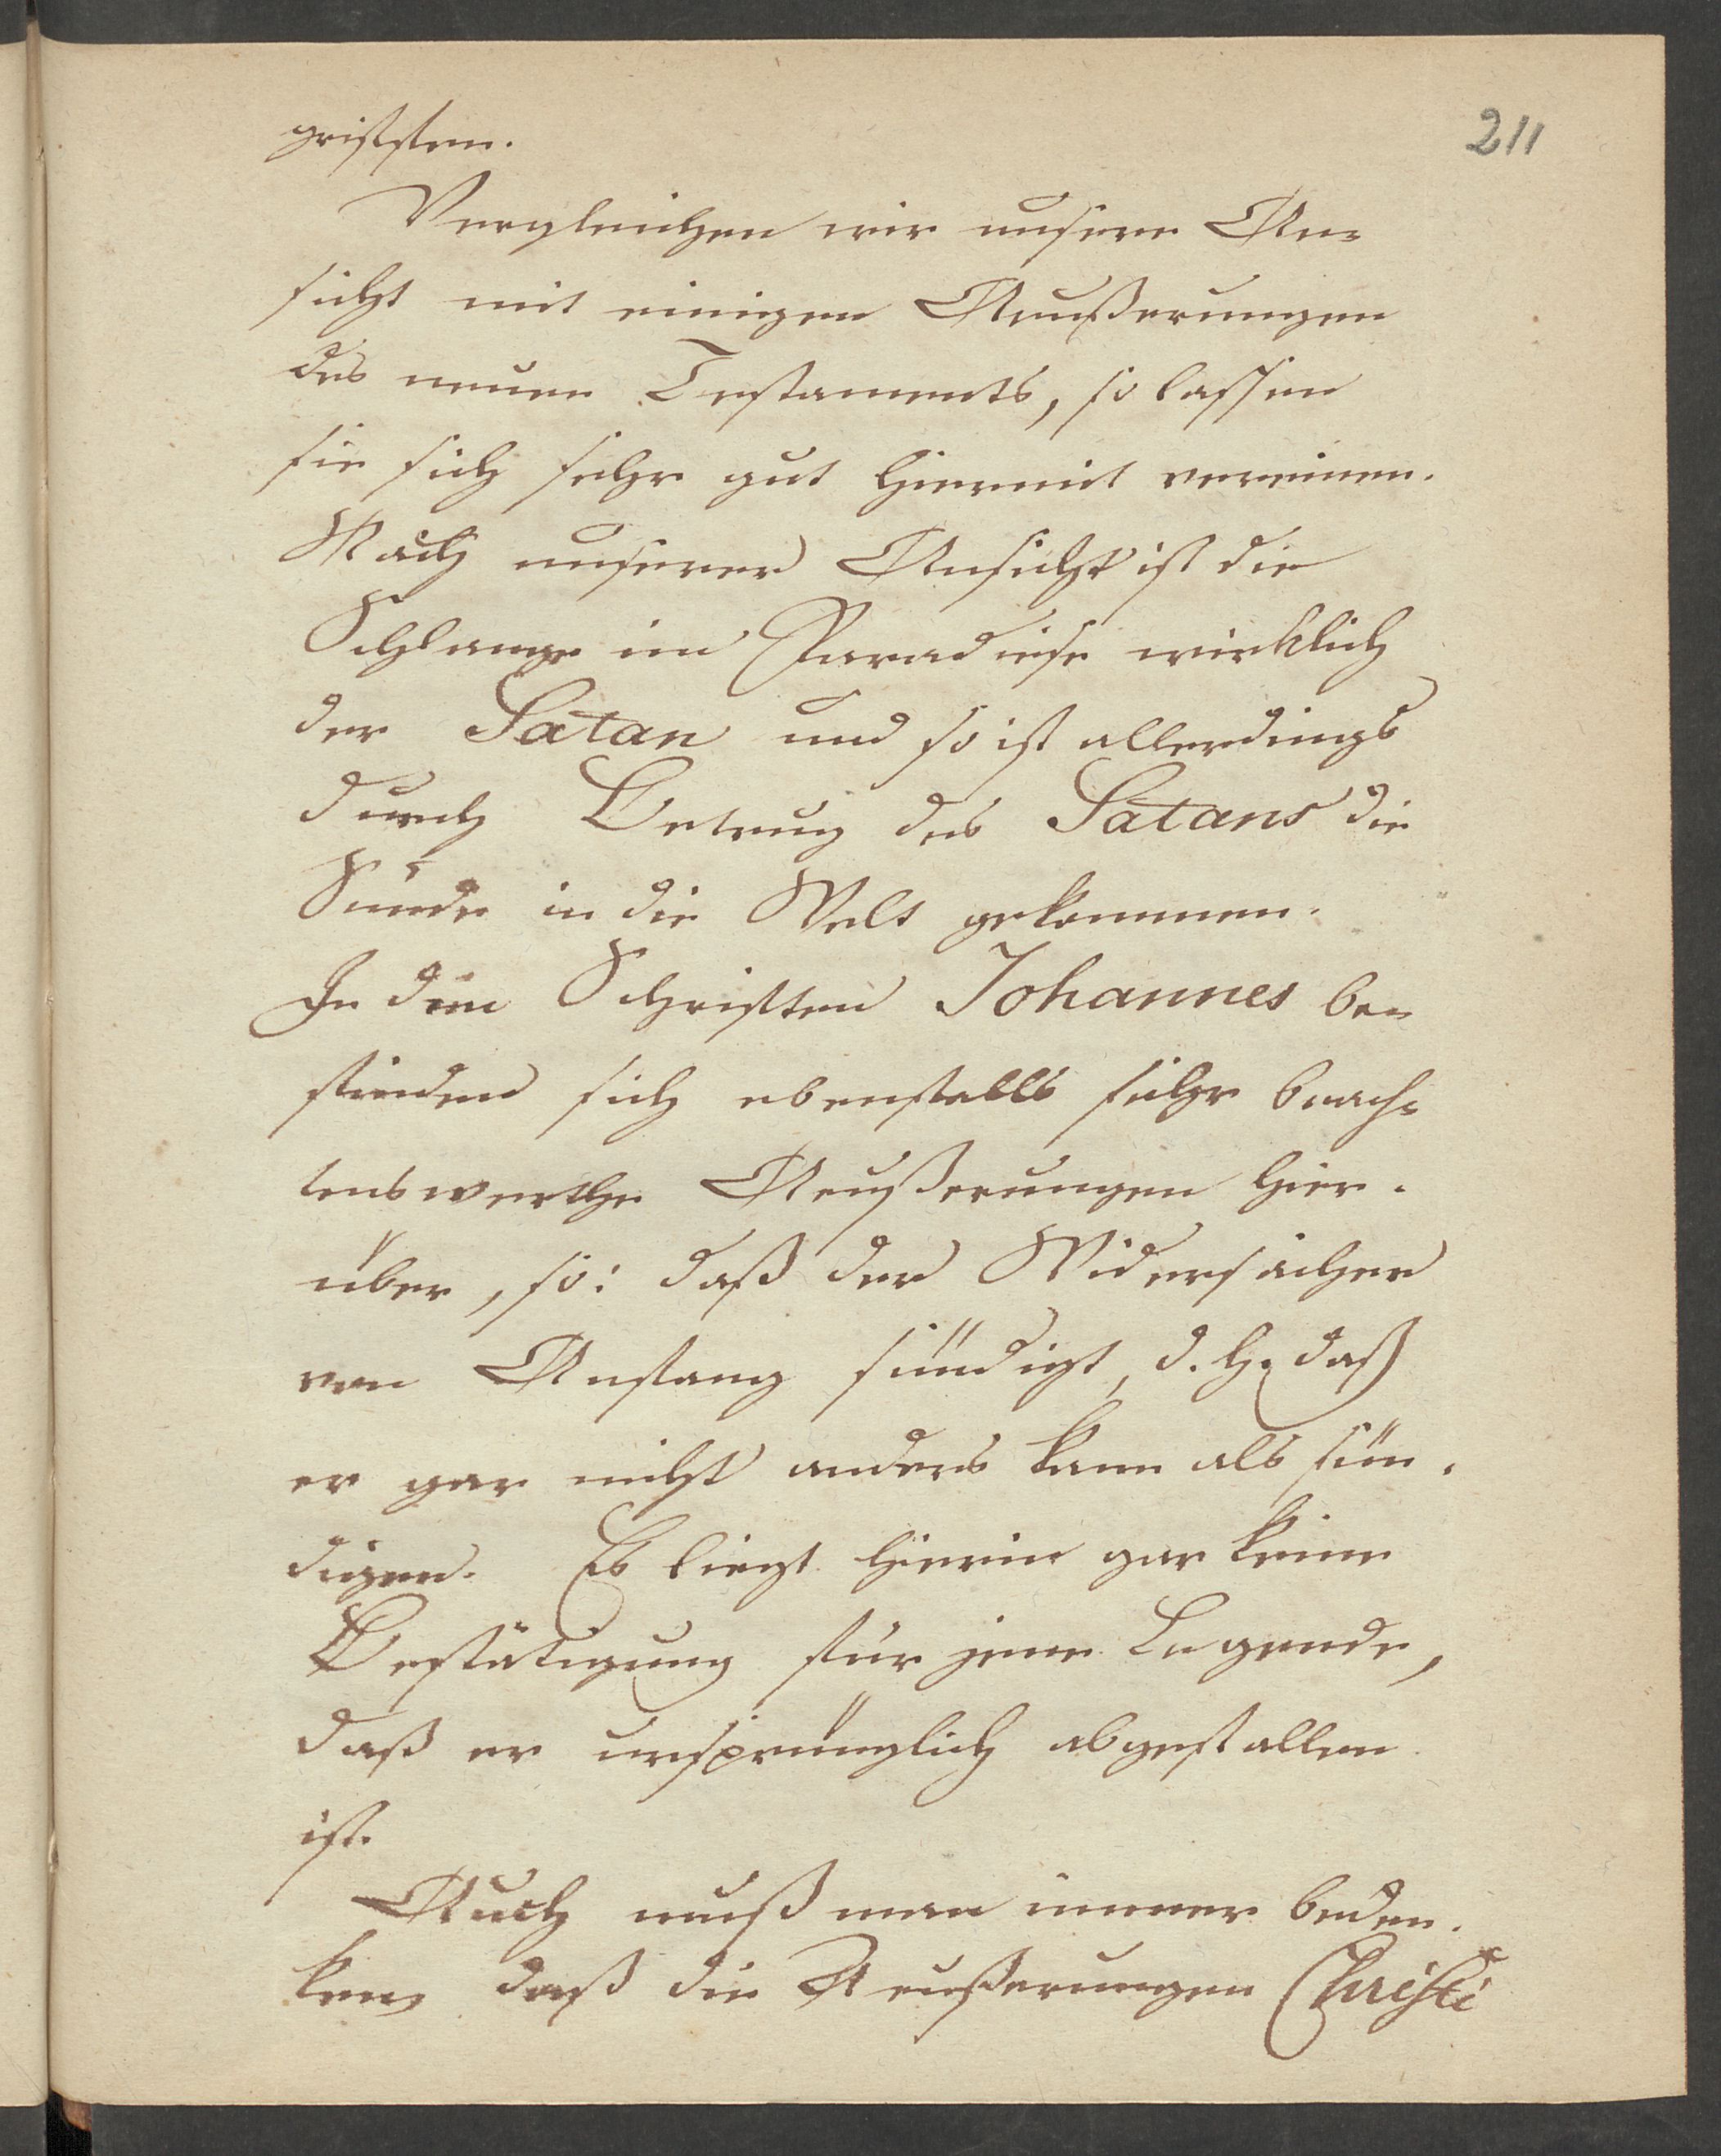 211
griffen.
Vergleichen wir unsere An-
sicht mit einigen Aeußerungen
des neuen Testaments, so lassen
sie sich sehr gut hiermit vereinen.
Nach unserer Ansicht ist die
Schlange im Paradiese wirklich
der Satan und so ist allerdings
durch Betrug des Satans die
Sünde in die Welt gekommen.
In den Schriften Johannes be-
finden sich ebenfalls sehr beach-
tenswerthe Aeußerungen hier-
über, so: daß der Widersacher
von Anfang sündigt, d. h. daß
er gar nicht anders kann als sün-
digen. Es liegt hierin gar keine
Bestätigung für jene Legende,
daß er ursprünglich abgefallen
ist.
Auch muß man immer beden-
ken, daß die Aeußerungen Christi